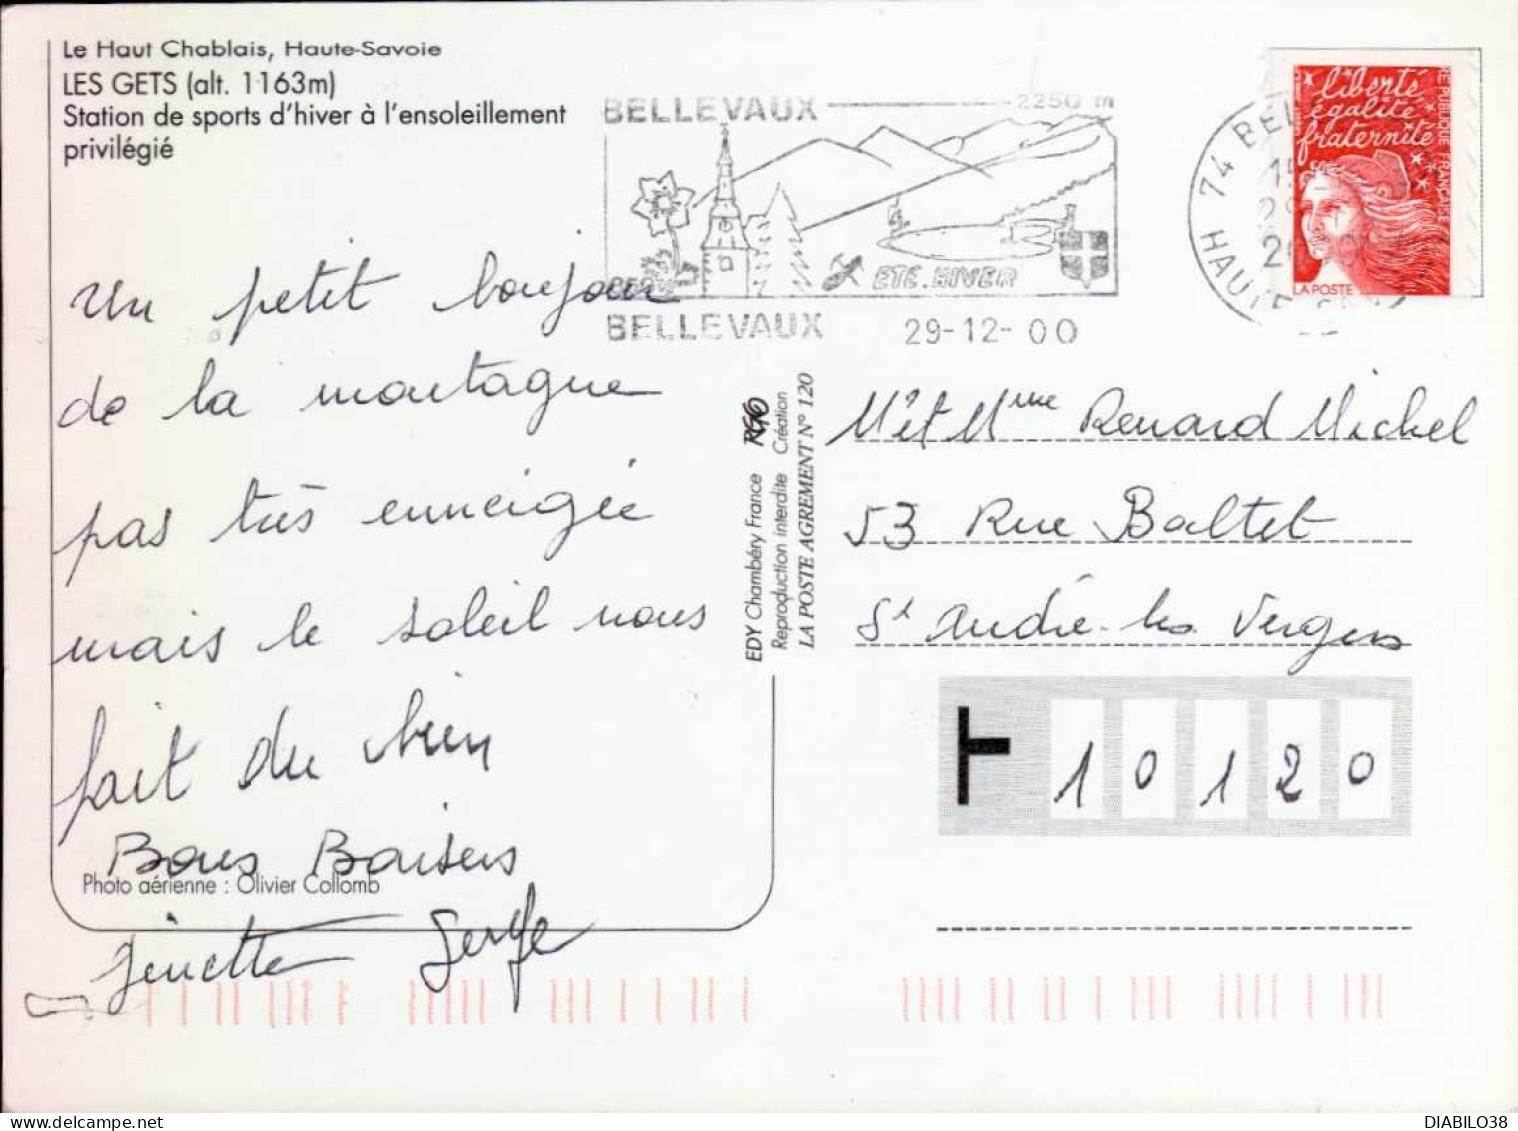 Le Haut Chablais, Haute-Savoie
LES GETS (alt. 1163m)
Station de sports d'hiver à l'ensoleillement
privilégié
BELLEVAUX 2250 m
ÉTÉ. HIVER
BELLEVAUX 29-12-00
74 BEL
HAUTE
liberté
égalité
fraternité
REPUBLIQUE FRANÇAISE
LA POSTE
Un petit bonjour
de la montagne
pas très enneigée
mais le soleil nous
fait du bien
Bons Baisers
Photo aérienne : Olivier Collomb
Ginette Serge
EDY Chambéry France
Reproduction interdite Création
LA POSTE AGREMENT N° 120
Mr et Mme Renard Michel
53 Rue Baltet
St André-les Vergers
10120
DIABILO38